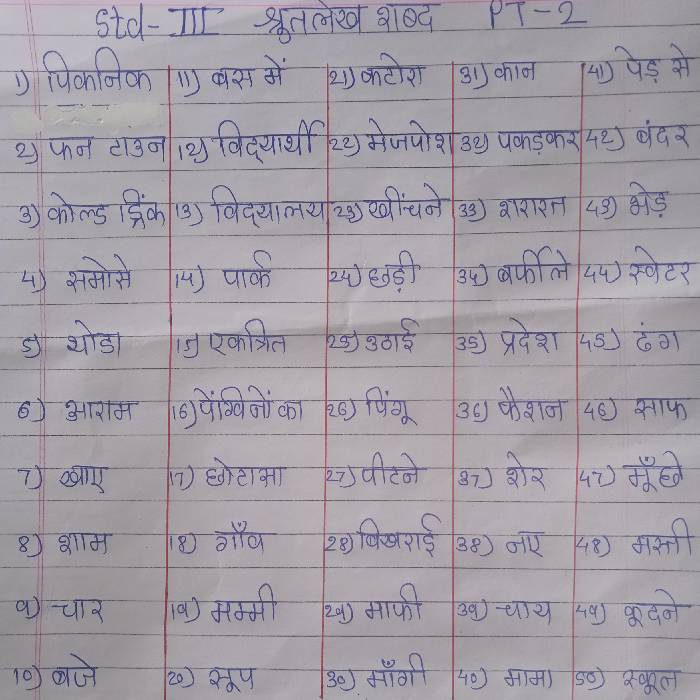 Std- III श्रुतलेख शब्द PT-2
1) पिकनिक 11) बस में 21) कटोरा 31) कान 41) पेड़ से
2) फन टाउन 12) विद्यार्थी 22) मेजपोश 32) पकड़कर 42) बंदर
3) कोल्ड ड्रिंक 13) विद्यालय 23) खींचने 33) शरारत 43) भेड़
4) समोसे 14) पार्क 24) छड़ी 34) बर्फीले 44) स्वेटर
5) थोडा 15) एकत्रित 25) उठाई 35) प्रदेश 45) ढंग
6) आराम 16) पेंग्विनों का 26) पिंगू 36) फैशन 46) साफ
7) खाए 17) छोटासा 27) पीटने 37) शेर 47) मूँछे
8) शाम 18) गाँव 28) बिखराई 38) नए 48) मस्ती
9) चार 19) मम्मी 29) माफी 39) चाय 49) कूदने
10) बजे 20) सूप 30) माँगी 40) मामा 50) स्कूल